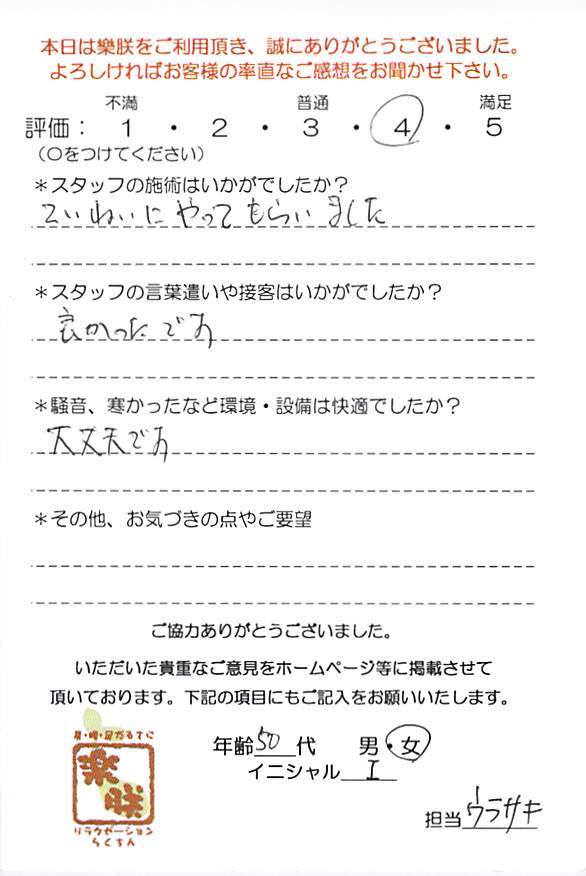 本日は樂朕をご利用頂き、誠にありがとうございました。
よろしければお客様の率直なご感想をお聞かせ下さい。
不満 普通 満足
評価： 1 ・ 2 ・ 3 ・ 4 ・ 5
（○をつけてください）
＊スタッフの施術はいかがでしたか？
ていねいにやってもらいました
＊スタッフの言葉遣いや接客はいかがでしたか？
良かったです
＊騒音、寒かったなど環境・設備は快適でしたか？
大丈夫です
＊その他、お気づきの点やご要望
ご協力ありがとうございました。
いただいた貴重なご意見をホームページ等に掲載させて
頂いております。下記の項目にもご記入をお願いいたします。
年齢50代 男・女
イニシャル I
肩・腰・足だるまに
楽朕
リラクゼーション
らくちん
担当 ウラサキ